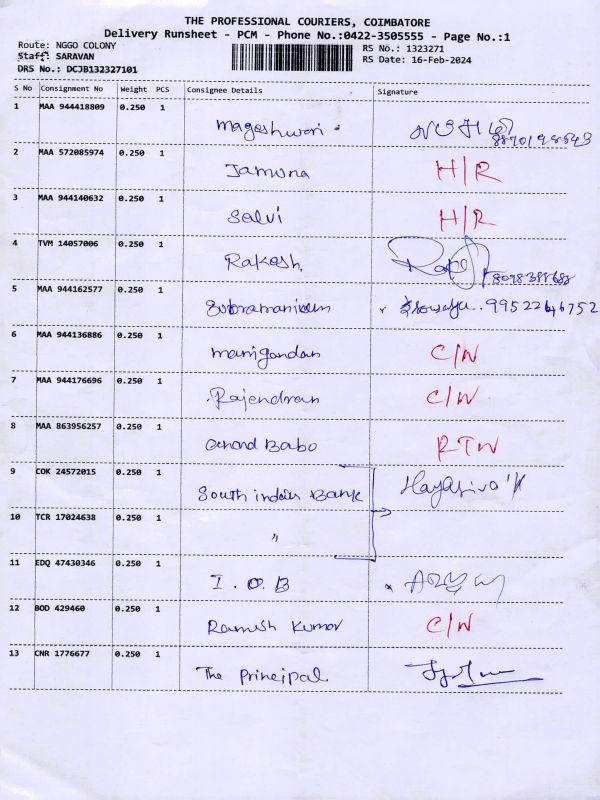 THE PROFESSIONAL COURIERS, COIMBATORE
Delivery Runsheet - PCM - Phone No.:0422-3505555 - Page No.:1
Route: NGGO COLONY
RS No.: 1323271
Staff: SARAVAN
RS Date: 16-Feb-2024
DRS No.: DCJB132327101
S No Consignment No Weight PCS Consignee Details Signature
1 MAA 944418809 0.250 1 Mageshwari
2 MAA 572085974 0.250 1 Jamuna H/R
3 MAA 944140632 0.250 1 Selvi H/R
4 TVM 14057006 0.250 1 Rakesh.
5 MAA 944162577 0.250 1 Subramaniam 9952246752
6 MAA 944136886 0.250 1 Manigandan C/N
7 MAA 944176696 0.250 1 Rajendran C/N
8 MAA 863956257 0.250 1 Anand Babo RTN
9 COK 24572015 0.250 1 South indian Bank
10 TCR 17024638 0.250 1 "
11 EDQ 47430346 0.250 1 I.O.B
12 BOD 429460 0.250 1 Ramesh Kumar C/N
13 CNR 1776677 0.250 1 The Principal